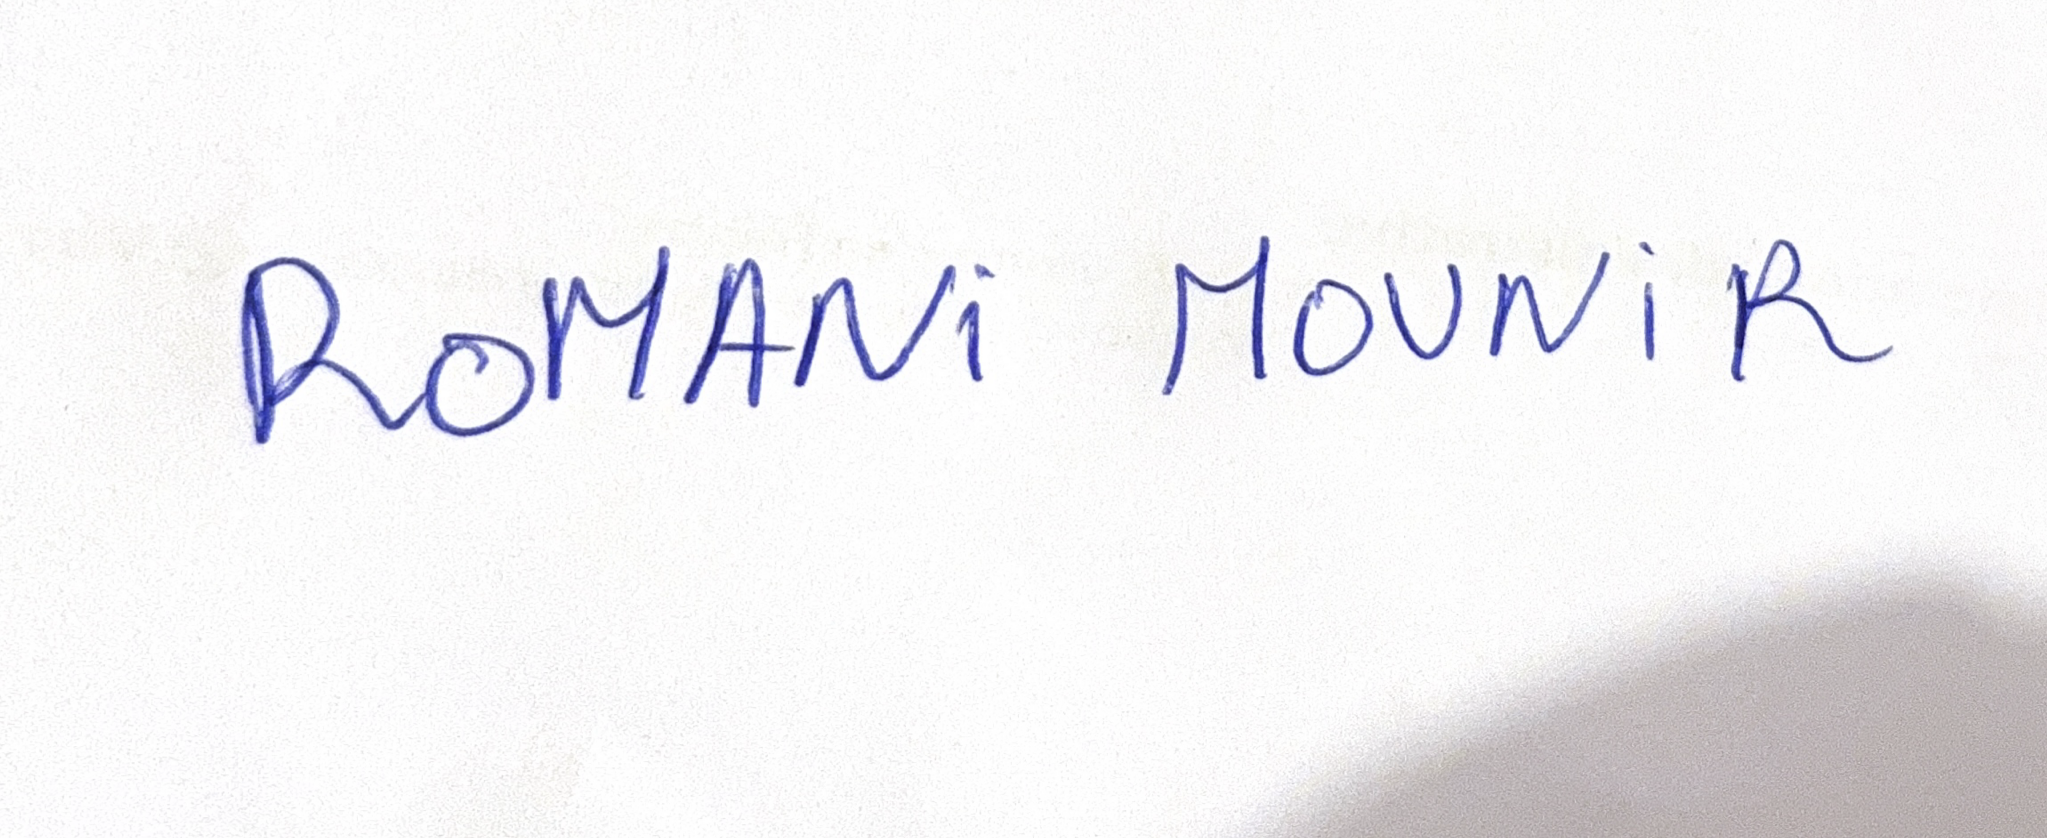 ROMANi MOUNiR